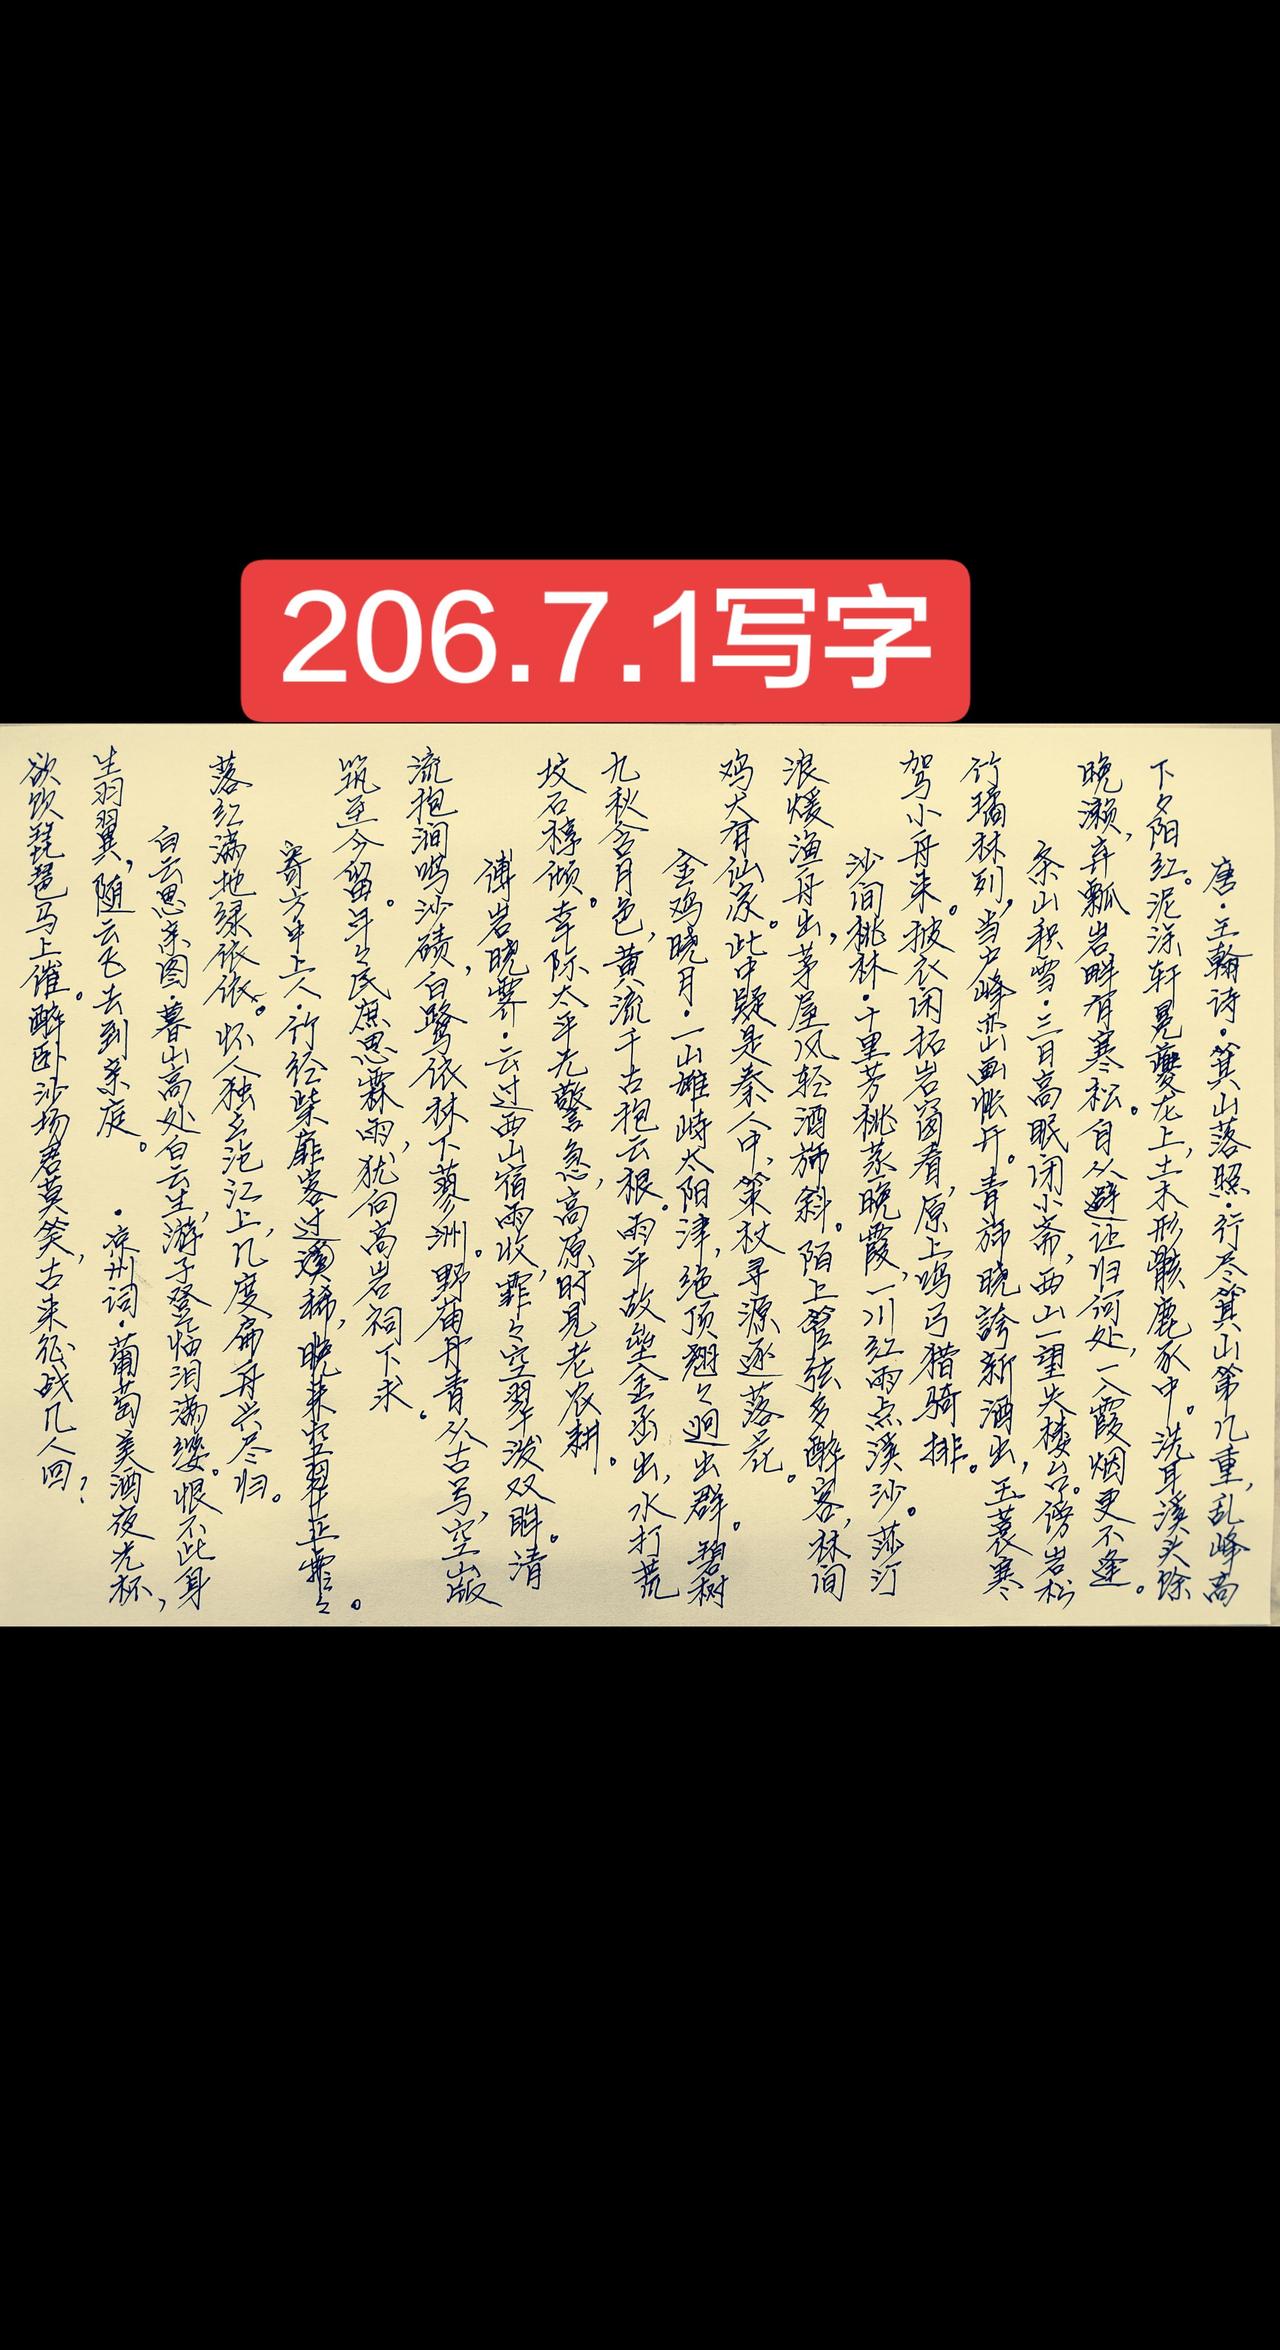 206.7.1写字
唐·王翰诗·箕山落照·行尽箕山第几重，乱峰高
下夕阳红。泥涂轩冕夔龙上，土木形骸鹿豕中。洗耳溪头馀
晚濑，弃瓢岩畔有寒松。自从避让归何处，一入霞烟更不逢。
条山积雪·三日高眠闭小斋，西山一望失楼台。傍岩松
竹璚林列，当户峰峦画帐开。青旆晓誇新酒出，玉蓑寒
驾小舟来。披衣闲拓岩窗看，原上鸣弓猎骑排。
沙间桃林·十里芳桃蒸晚霞，一川红雨点溪沙。莎汀
浪煖渔舟出，茅屋风轻酒旆斜。陌上管弦多醉客，林间
鸡犬有仙家。此中疑是秦人中，策杖寻源逐落花。
金鸡晓月·一山雄峙太阳津，绝顶翘々迥出群。碧树
九秋含月色，黄流千古抱云根。雨平故垒金函出，水打荒
坟石椁倾。幸际太平无警急，高原时见老农耕。
傅岩晓霁·云过西山宿雨收，霏々空翠泼双眸。清
流抱涧鸣沙碛，白鹭依林下蓼洲。野庙丹青从古写，空山版
筑至今留。斗之民庶思霖雨，犹向高岩祠下求。
寄方中上人·竹经柴扉客过稀，晚来空翠正霏々。
落红满地绿依依。怀人独立沱江上，几度扁舟兴尽归。
白云思亲图·暮山高处白云生，游子登临泪满缨。恨不此身
生羽翼，随云飞去到亲庭。·凉州词·葡萄美酒夜光杯，
欲饮琵琶马上催。醉卧沙场君莫笑，古来征战几人回？